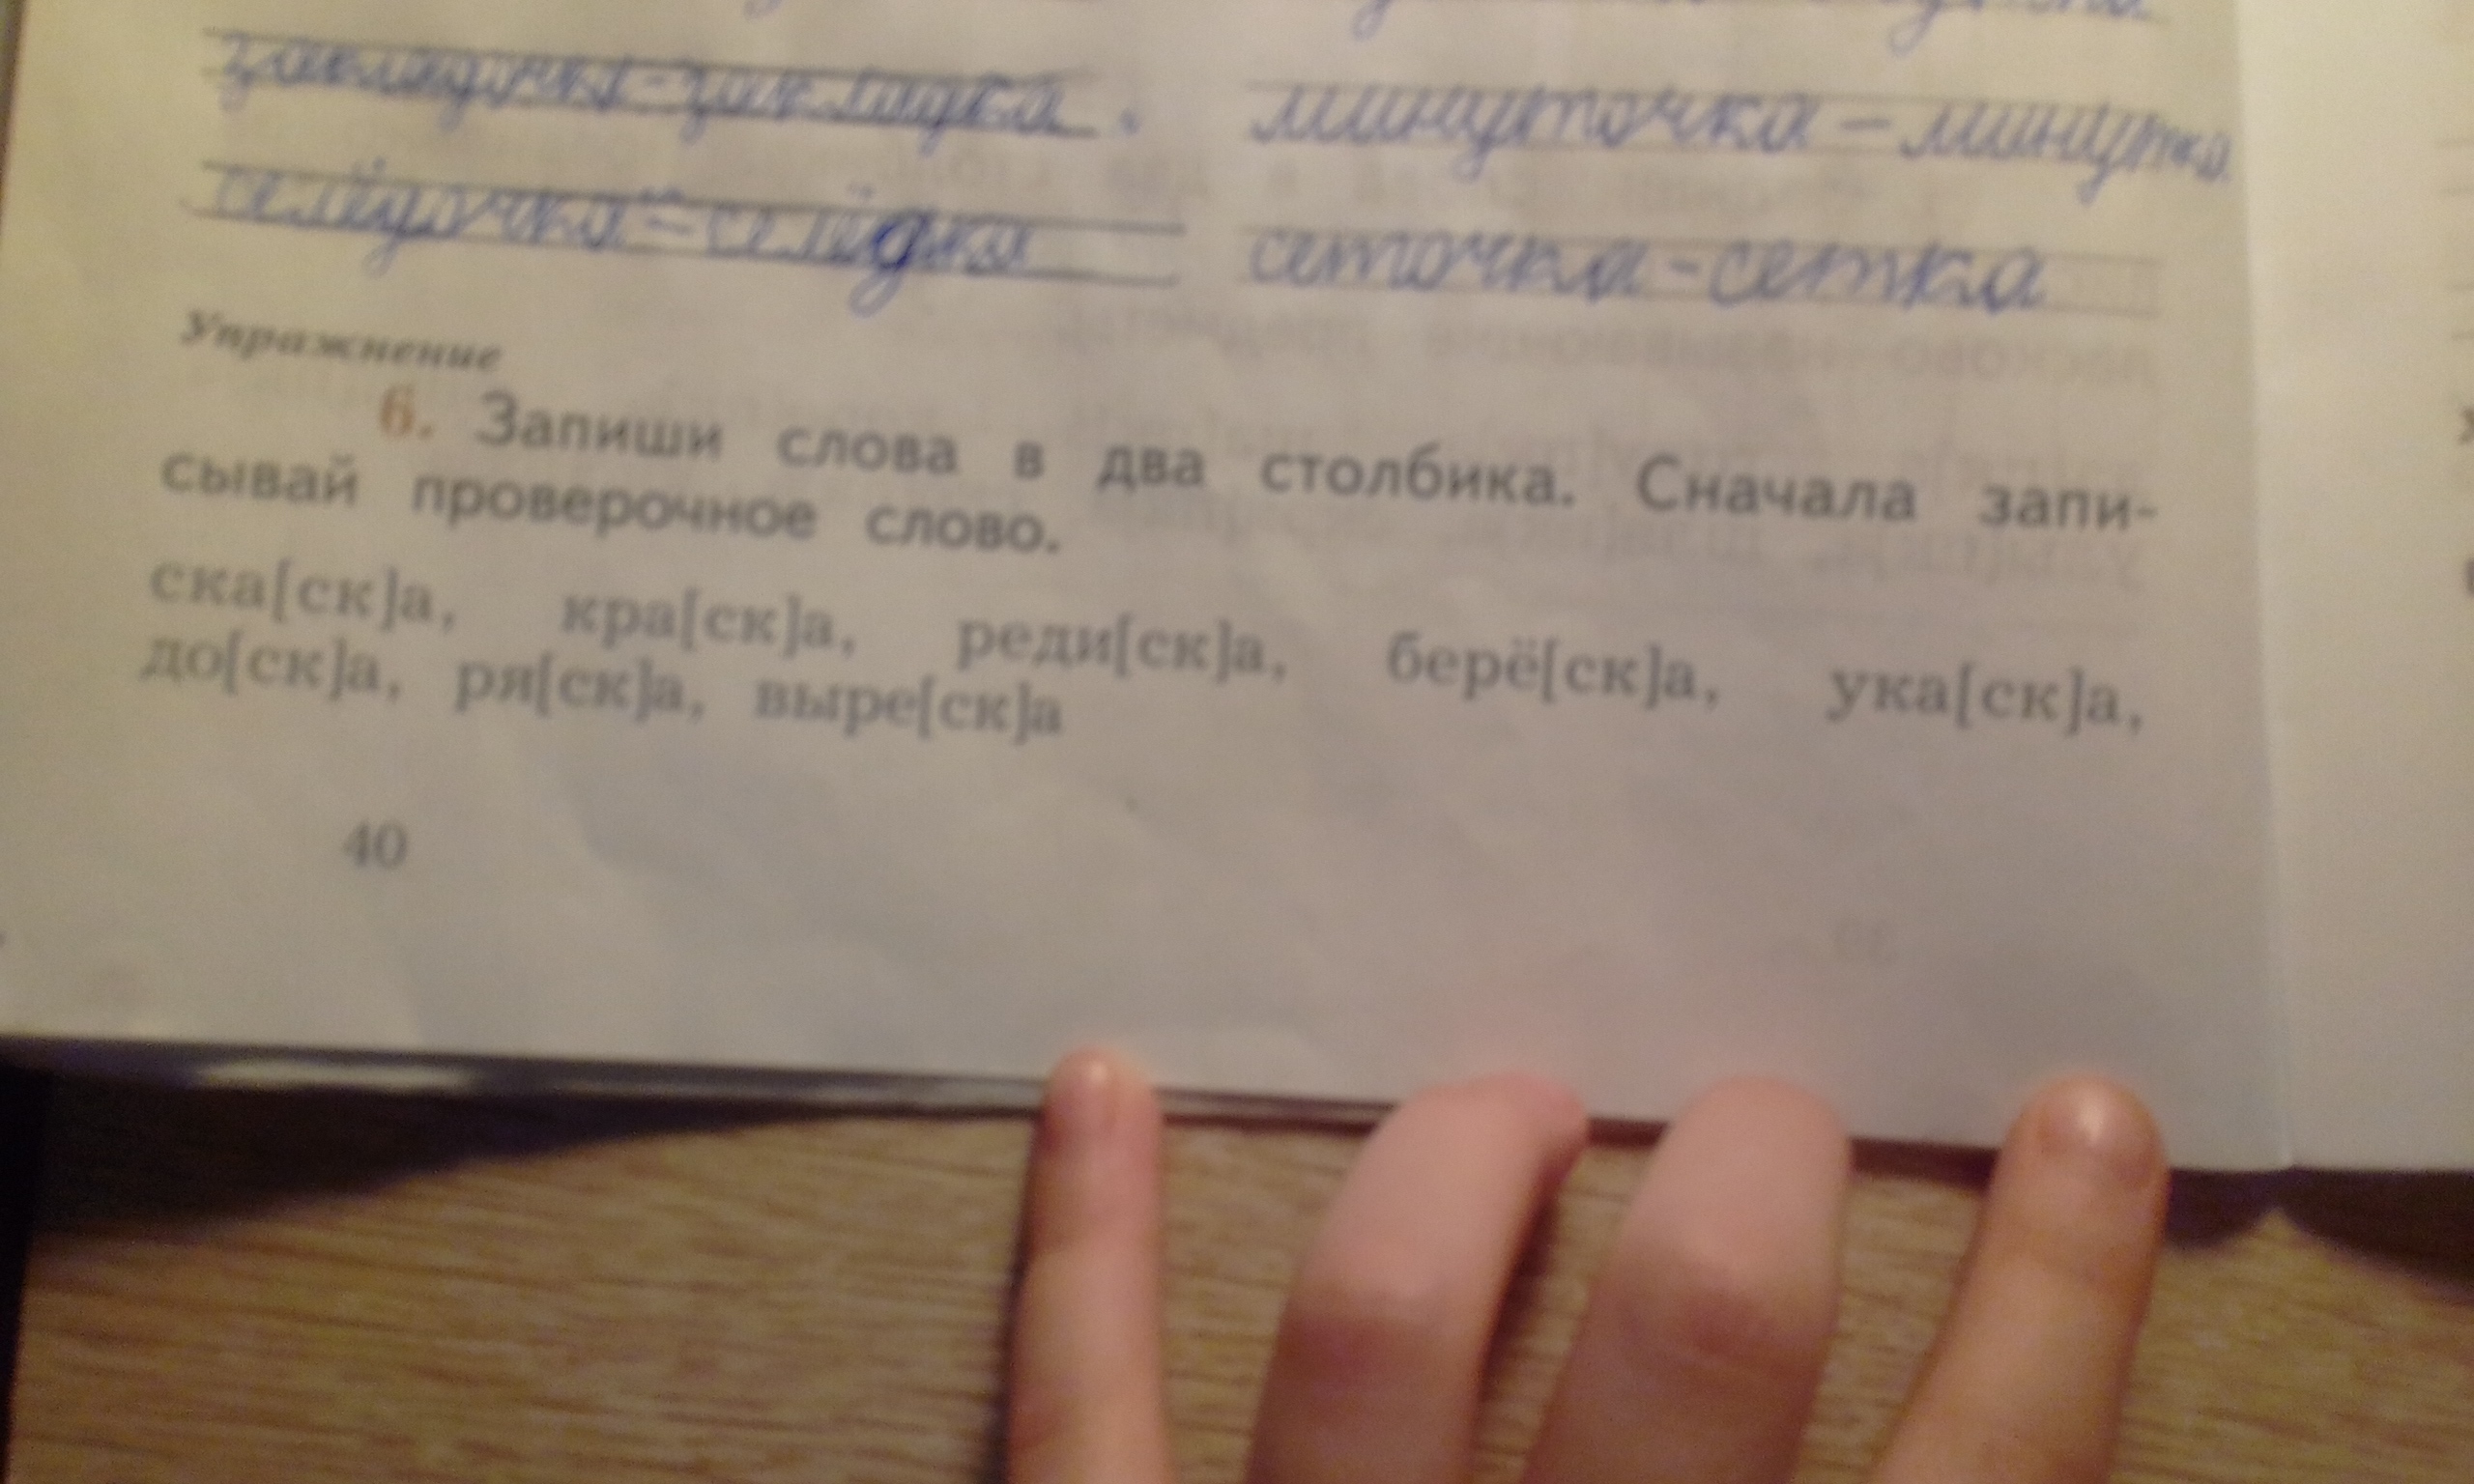 закладочка - закладка.
минуточка - минутка
селёдочка - селёдка
сеточка - сетка
Упражнение
6. Запиши слова в два столбика. Сначала запи-
сывай проверочное слово.
ска[ск]а, кра[ск]а, реди[ск]а, берё[ск]а, ука[ск]а,
до[ск]а, ря[ск]а, выре[ск]а
40